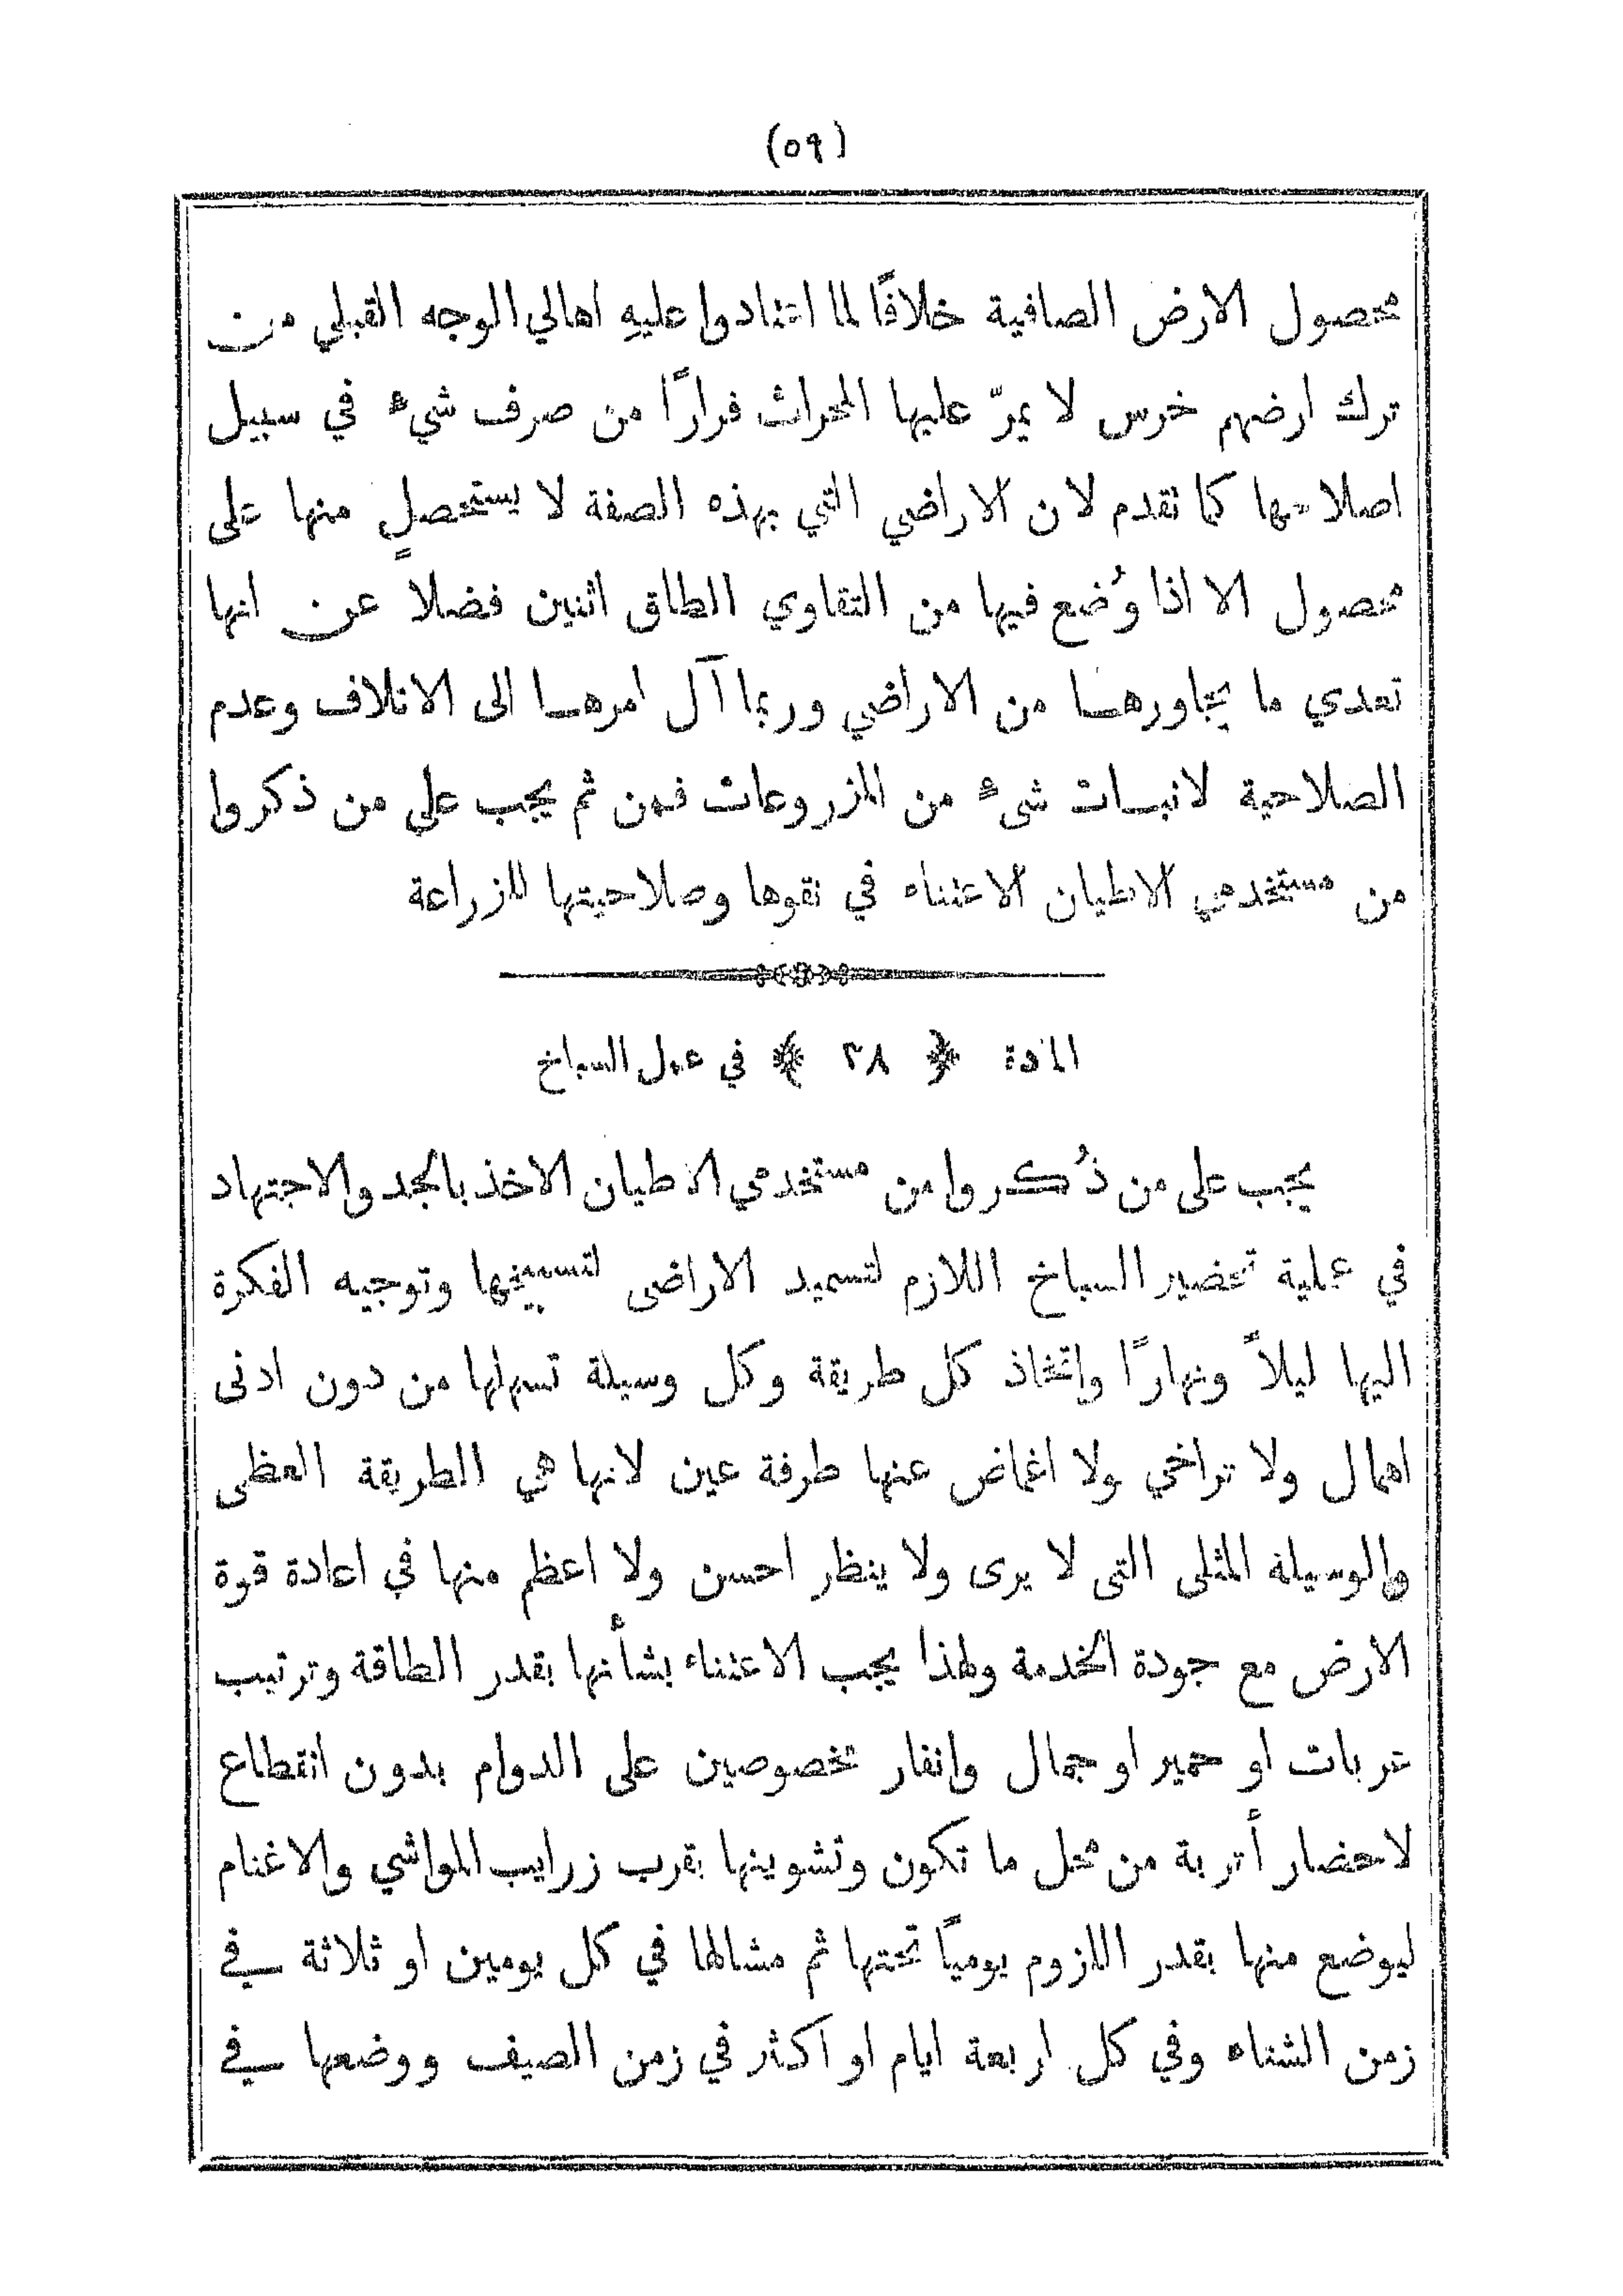 (٥٩)
محصول الارض الصافية خلافًا لما اعتادوا عليهِ اهالي الوجه القبلي من
ترك ارضهم خرس لا يمرّ عليها المحراث فرارًا من صرف شيء في سبيل
اصلاحها كما تقدم لان الاراضي التي بهذه الصفة لا يستحصل منها على
محصول الا اذا وُضع فيها من التقاوي الطاق اثنين فضلاً عن انها
تعدي ما يجاورها من الاراضي وربما آل امرها الى الاتلاف وعدم
الصلاحية لانبات شيء من المزروعات فمن ثم يجب على من ذكروا
من مستخدمي الاطيان الاعتناء في نقوها وصلاحيتها للزراعة
المادة ﴿ ٢٨ ﴾ في عمل السباخ
يجب على من ذُكروا من مستخدمي الاطيان الاخذ بالجد والاجتهاد
في عملية تحضير السباخ اللازم لتسميد الاراضى لتسبيخها وتوجيه الفكرة
اليها ليلاً ونهارًا واتخاذ كل طريقة وكل وسيلة تسهلها من دون ادنى
اهمال ولا تراخي ولا اغماض عنها طرفة عين لانها هي الطريقة العظمى
والوسيلة المثلى التى لا يرى ولا ينظر احسن ولا اعظم منها في اعادة قوة
الارض مع جودة الخدمة ولهذا يجب الاعتناء بشأنها بقدر الطاقة وترتيب
عربات او حمير او جمال وانفار مخصوصين على الدوام بدون انقطاع
لاحضار أتربة من محل ما تكون وتشوينها بقرب زرايب المواشي والاغنام
ليوضع منها بقدر اللزوم يوميًا تحتها ثم مشالها في كل يومين او ثلاثة في
زمن الشتاء وفي كل اربعة ايام او اكثر في زمن الصيف ووضعها في